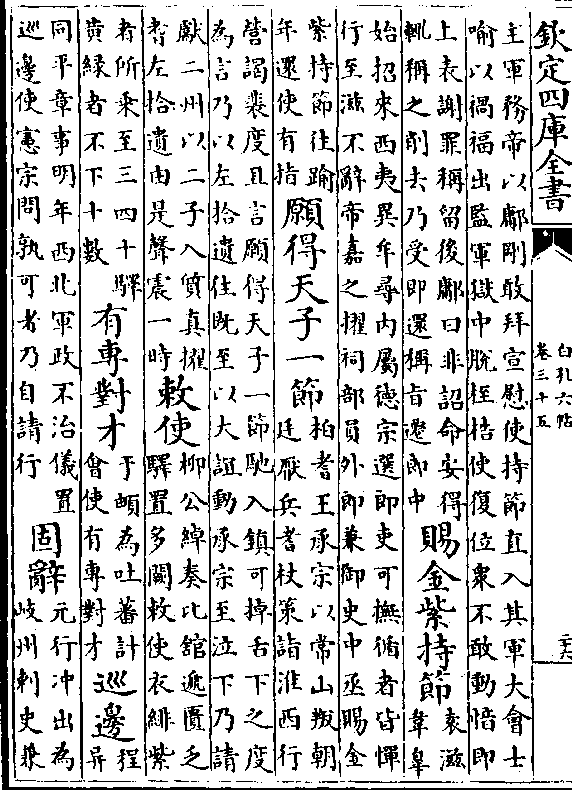 欽定四庫全書
主軍務帝以鄘剛敢拜宣慰使持節直入其軍大會士
喻以禍福出監軍獄中脫桎梏使復位衆不敢動愔即
上表謝罪稱留後鄘曰非詔命安得
輒稱之削去乃受即還稱旨遷郎中
賜金紫持節
袁滋
韋臯
始招來西夷異牟尋内屬德宗選郎吏可撫循者皆憚
行至滋不辭帝嘉之擢祠部員外郎兼御史中丞賜金
紫持節往踰
年還使有指
願得天子一節
柏耆王承宗以常山叛朝
廷厭兵耆杖策詣淮西行
營謁裴度且言願得天子一節馳入鎮可掉舌下之度
為言乃以左拾遺往既至以大誼動承宗至泣下乃請
獻二州以二子入質真擢
耆左拾遺由是聲震一時
敕使
柳公綽奏比館逓匱乏
驛置多闕敕使衣緋紫
者所乘至三四十驛
黄緑者不下十數
有專對才
于頔為吐蕃計
會使有專對才
巡邊
程
异
同平章事明年西北軍政不治儀置
巡邊使憲宗問孰可者乃自請行
固辭
元行冲出為
岐州刺史兼
白孔六帖
卷三十五